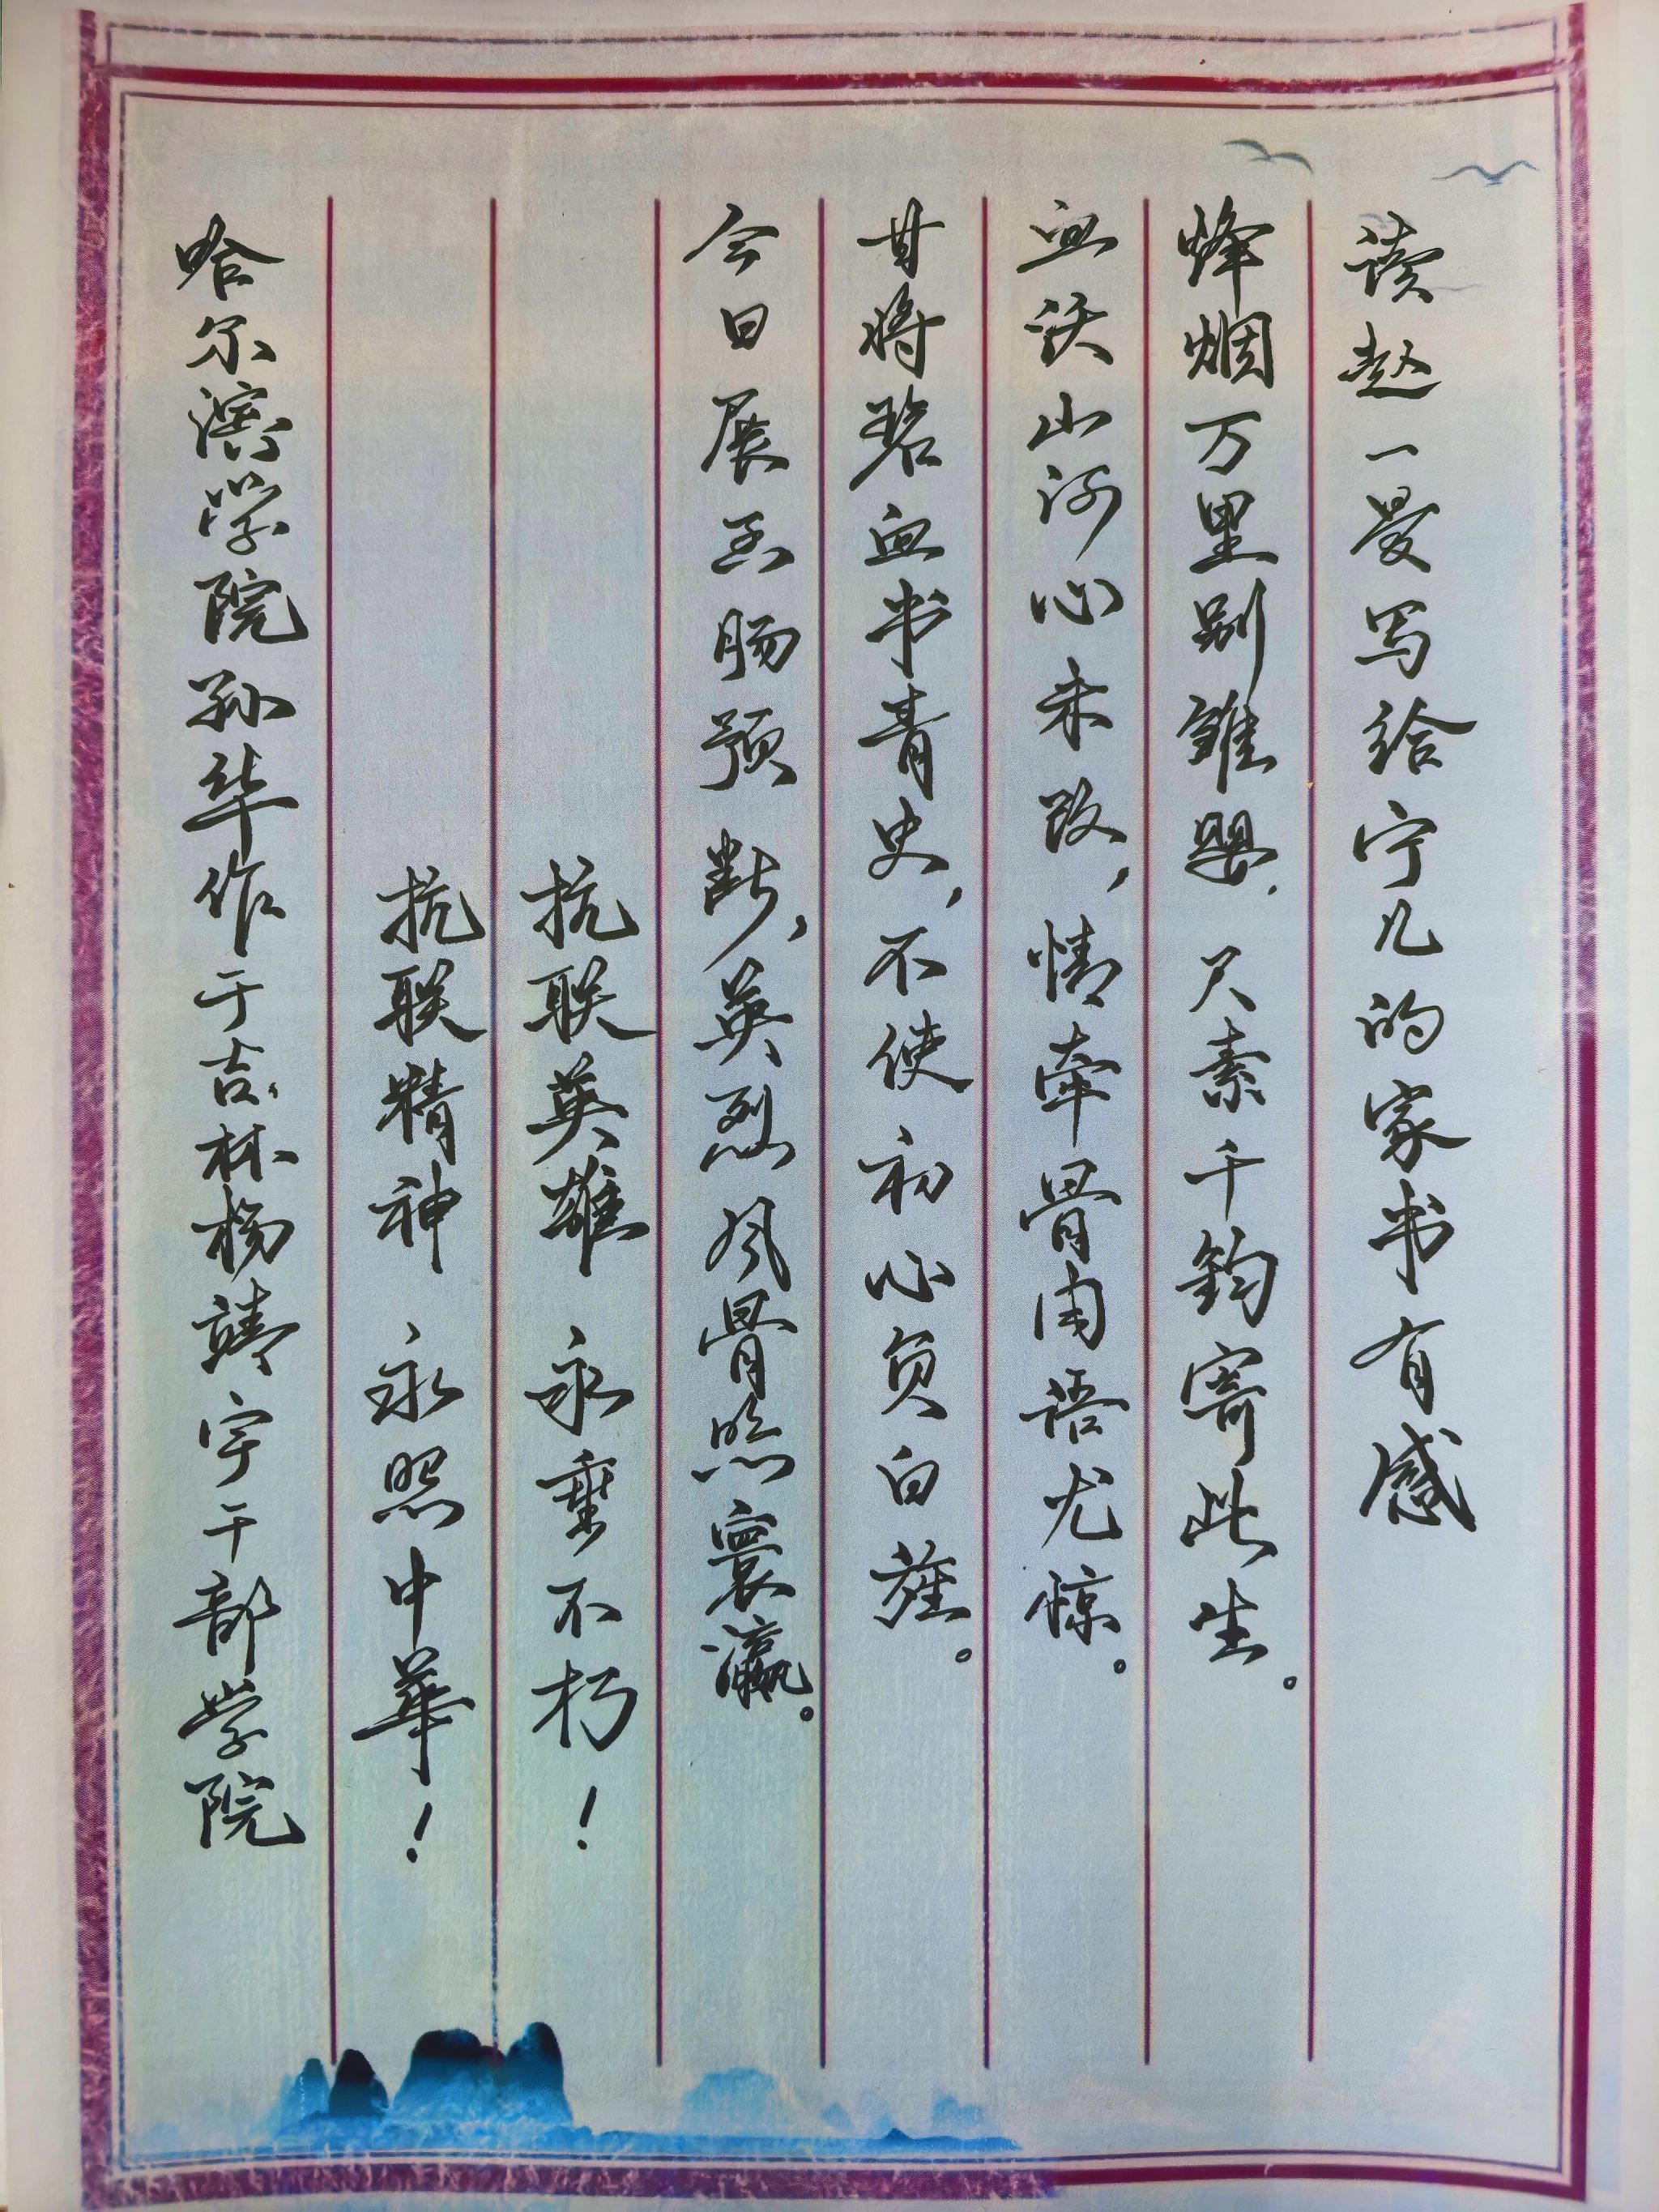 读赵一曼写给宁儿的家书有感
烽烟万里别雏婴，尺素千钧寄此生。
血沃山河心未改，情牵骨肉语尤惊。
甘将碧血书青史，不使初心负白。
今日展函肠预断，英烈风骨照寰瀛。
抗联英雄 永垂不朽！
抗联精神 永照中華！
哈尔滨学院孙华作于吉林杨靖宇干部学院